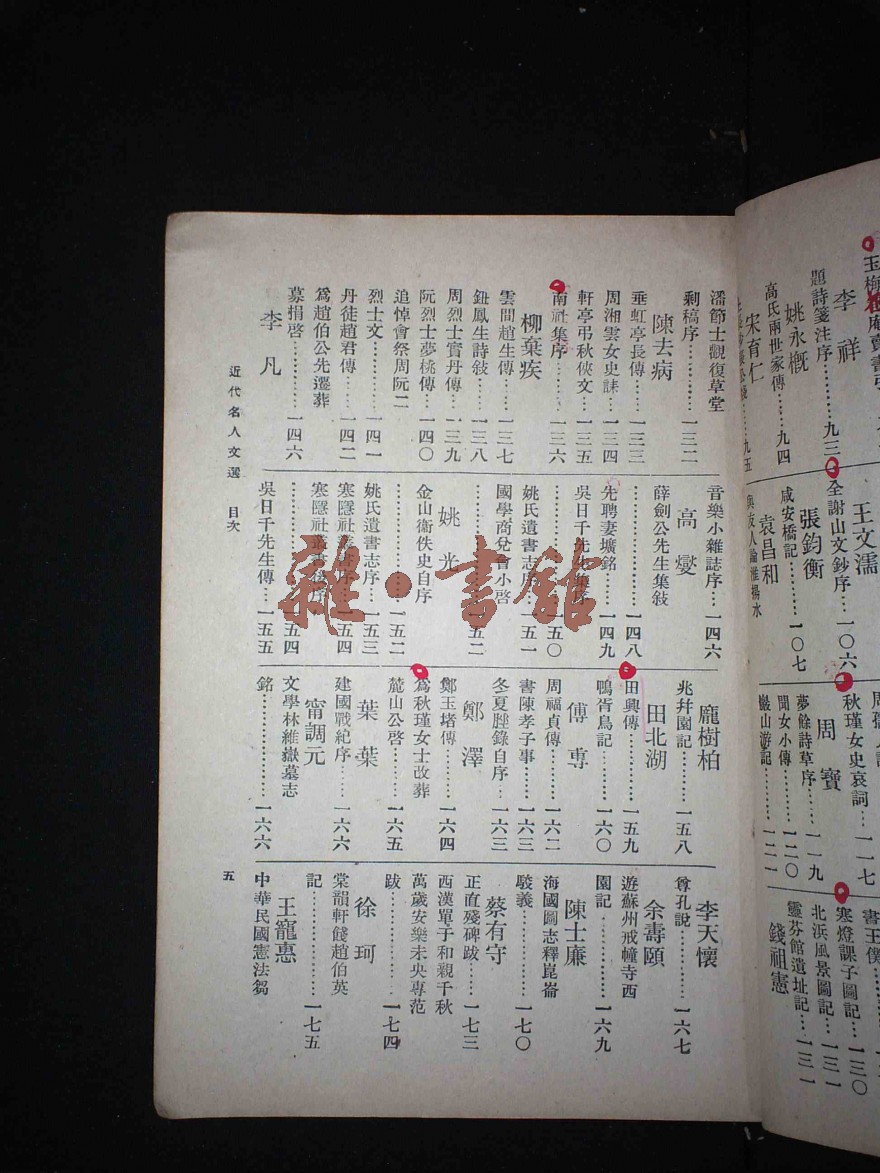 玉梅
李祥
題詩箋注序………九三
姚永概
高氏兩世家傳…九四
宋育仁
王文濡
全謝山文鈔序…一〇六
張鈞衡
咸安橋記………一〇七
袁昌和
與友人論淮揚水
秋瑾女史哀詞…一一七
周實
夢餘詩草序……一一九
聞女小傳………一二〇
巖山遊記………一二一
書王僕
寒燈課子圖記…一三〇
北浜風景圖記…一三一
靈芬館遺址記…一三一
錢祖憲
潘節士觀復草堂
剩稿序…………一三二
陳去病
垂虹亭長傳……一三三
周湘雲女史誄…一三四
軒亭弔秋俠文…一三五
南社集序………一三六
柳棄疾
雲間趙生傳……一三七
鈕鳳生詩敍……一三八
周烈士實丹傳…一三九
阮烈士夢桃傳…一四〇
追悼會祭周阮二
烈士文…………一四一
丹徒趙君傳……一四二
爲趙伯公先遷葬
募捐啓…………一四六
李凡
音樂小雜誌序…一四六
高燮
薛劍公先生集敍
…………………一四八
先聘妻壙銘……一四九
吳日千先生集序
…………………一五〇
姚氏遺書志序…一五一
國學商兌會小啓
…………………一五二
姚光
金山衞佚史自序
…………………一五二
姚氏遺書志序…一五三
寒隱社叢書序…一五四
寒隱社叢書後序
…………………一五四
吳日千先生傳…一五五
龐樹柏
兆弁園記………一五八
田北湖
田興傳…………一五九
鴨胥鳥記………一六〇
傅尃
周福貞傳………一六二
書陳孝子事……一六三
冬夏脞錄自序…一六三
鄭澤
鄭玉堵傳………一六四
爲秋瑾女士改葬
麓山公啓………一六五
葉葉
建國戰紀序……一六六
甯調元
文學林維嶽墓志
銘………………一六六
李天懷
尊孔說…………一六七
余壽頤
遊蘇州戒幢寺西
園記……………一六九
陳士廉
海國圖志釋崑崙
駿義……………一七〇
蔡有守
正直殘碑跋……一七三
西漢單于和親千秋
萬歲安樂未央專范
跋………………一七四
徐珂
棠韻軒餞趙伯英
記………………一七五
王寵惠
中華民國憲法芻
近代名人文選 目次
五
雜·書館